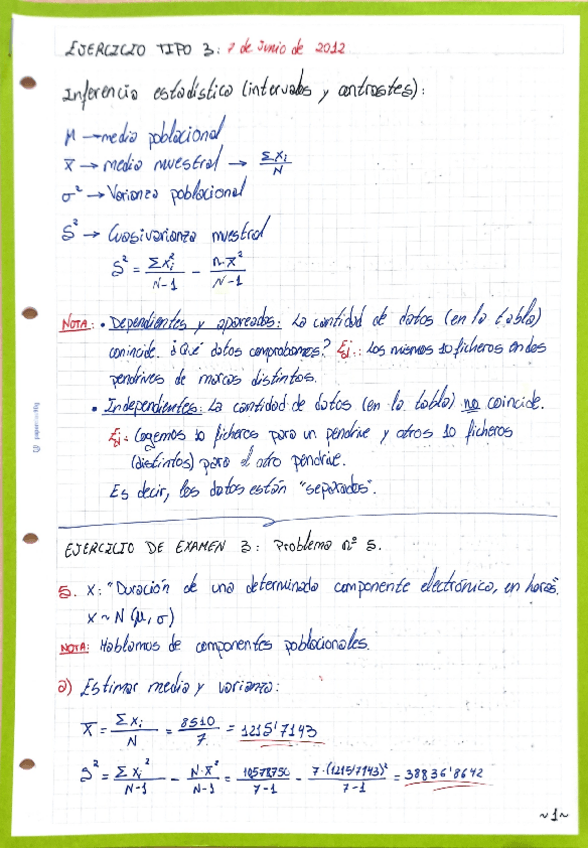 EJERCICIO TIPO 3: 7 de Junio de 2012
Inferencia estadística (intervalos y contrastes):
μ → media poblacional
x̄ → media muestral → Σxi / N
σ² → Varianza poblacional
S² → Cuasivarianza muestral
S² = Σxi² / N-1 - n·x̄² / N-1
NOTA: • Dependientes y apareados: La cantidad de datos (en la tabla)
conincide. ¿Qué datos comprobamos? Ej.: Los mismos 10 ficheros en dos
pendrives de marcas distintas.
• Independientes: La cantidad de datos (en la tabla) no coincide.
Ej: Cogemos 10 ficheros para un pendrive y otros 10 ficheros
(distintos) para el otro pendrive.
Es decir, los datos están "separados".
EJERCICIO DE EXAMEN 3: Problema nº 5.
5. X: "Duración de una determinada componente electrónica, en horas".
X ~ N (μ, σ)
NOTA: Hablamos de componentes poblacionales.
a) Estimar media y varianza:
X̄ = Σxi / N = 8510 / 7 = 1215'7143
S² = Σxi² / N-1 - N·x̄² / N-1 = 10578750 / 7-1 - 7·(1215'7143)² / 7-1 = 38836'8642
~1~